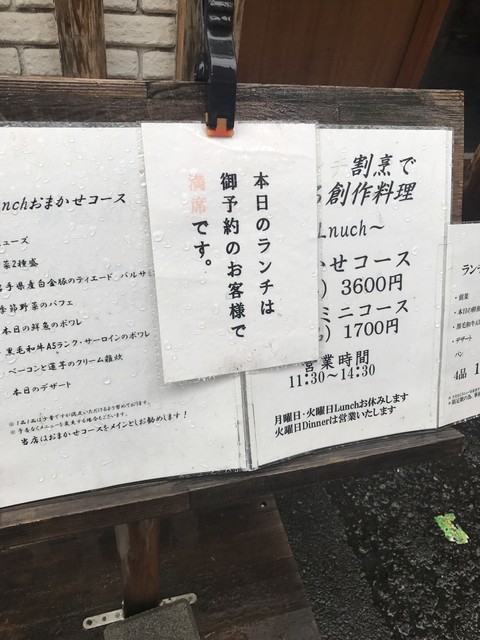 本日のランチは
御予約のお客様で
満席です。
nchおまかせコース
ューズ
菜2種盛
手県産白金豚のティエード バルサミ
季節野菜のパフェ
本日の鮮魚のポワレ
黒毛和牛A5ランク・サーロインのポワレ
ベーコンと蓮芋のクリーム雑炊
本日のデザート
当店はおまかせコースをメインとしお勧めします!
割烹で
る創作料理
Lnuch～
かせコース
) 3600円
ミニコース
) 1700円
営業時間
11:30～14:30
月曜日・火曜日Lunchお休みします
火曜日Dinnerは営業いたします
ラン
・前菜
・デザート
・パン
4品 1